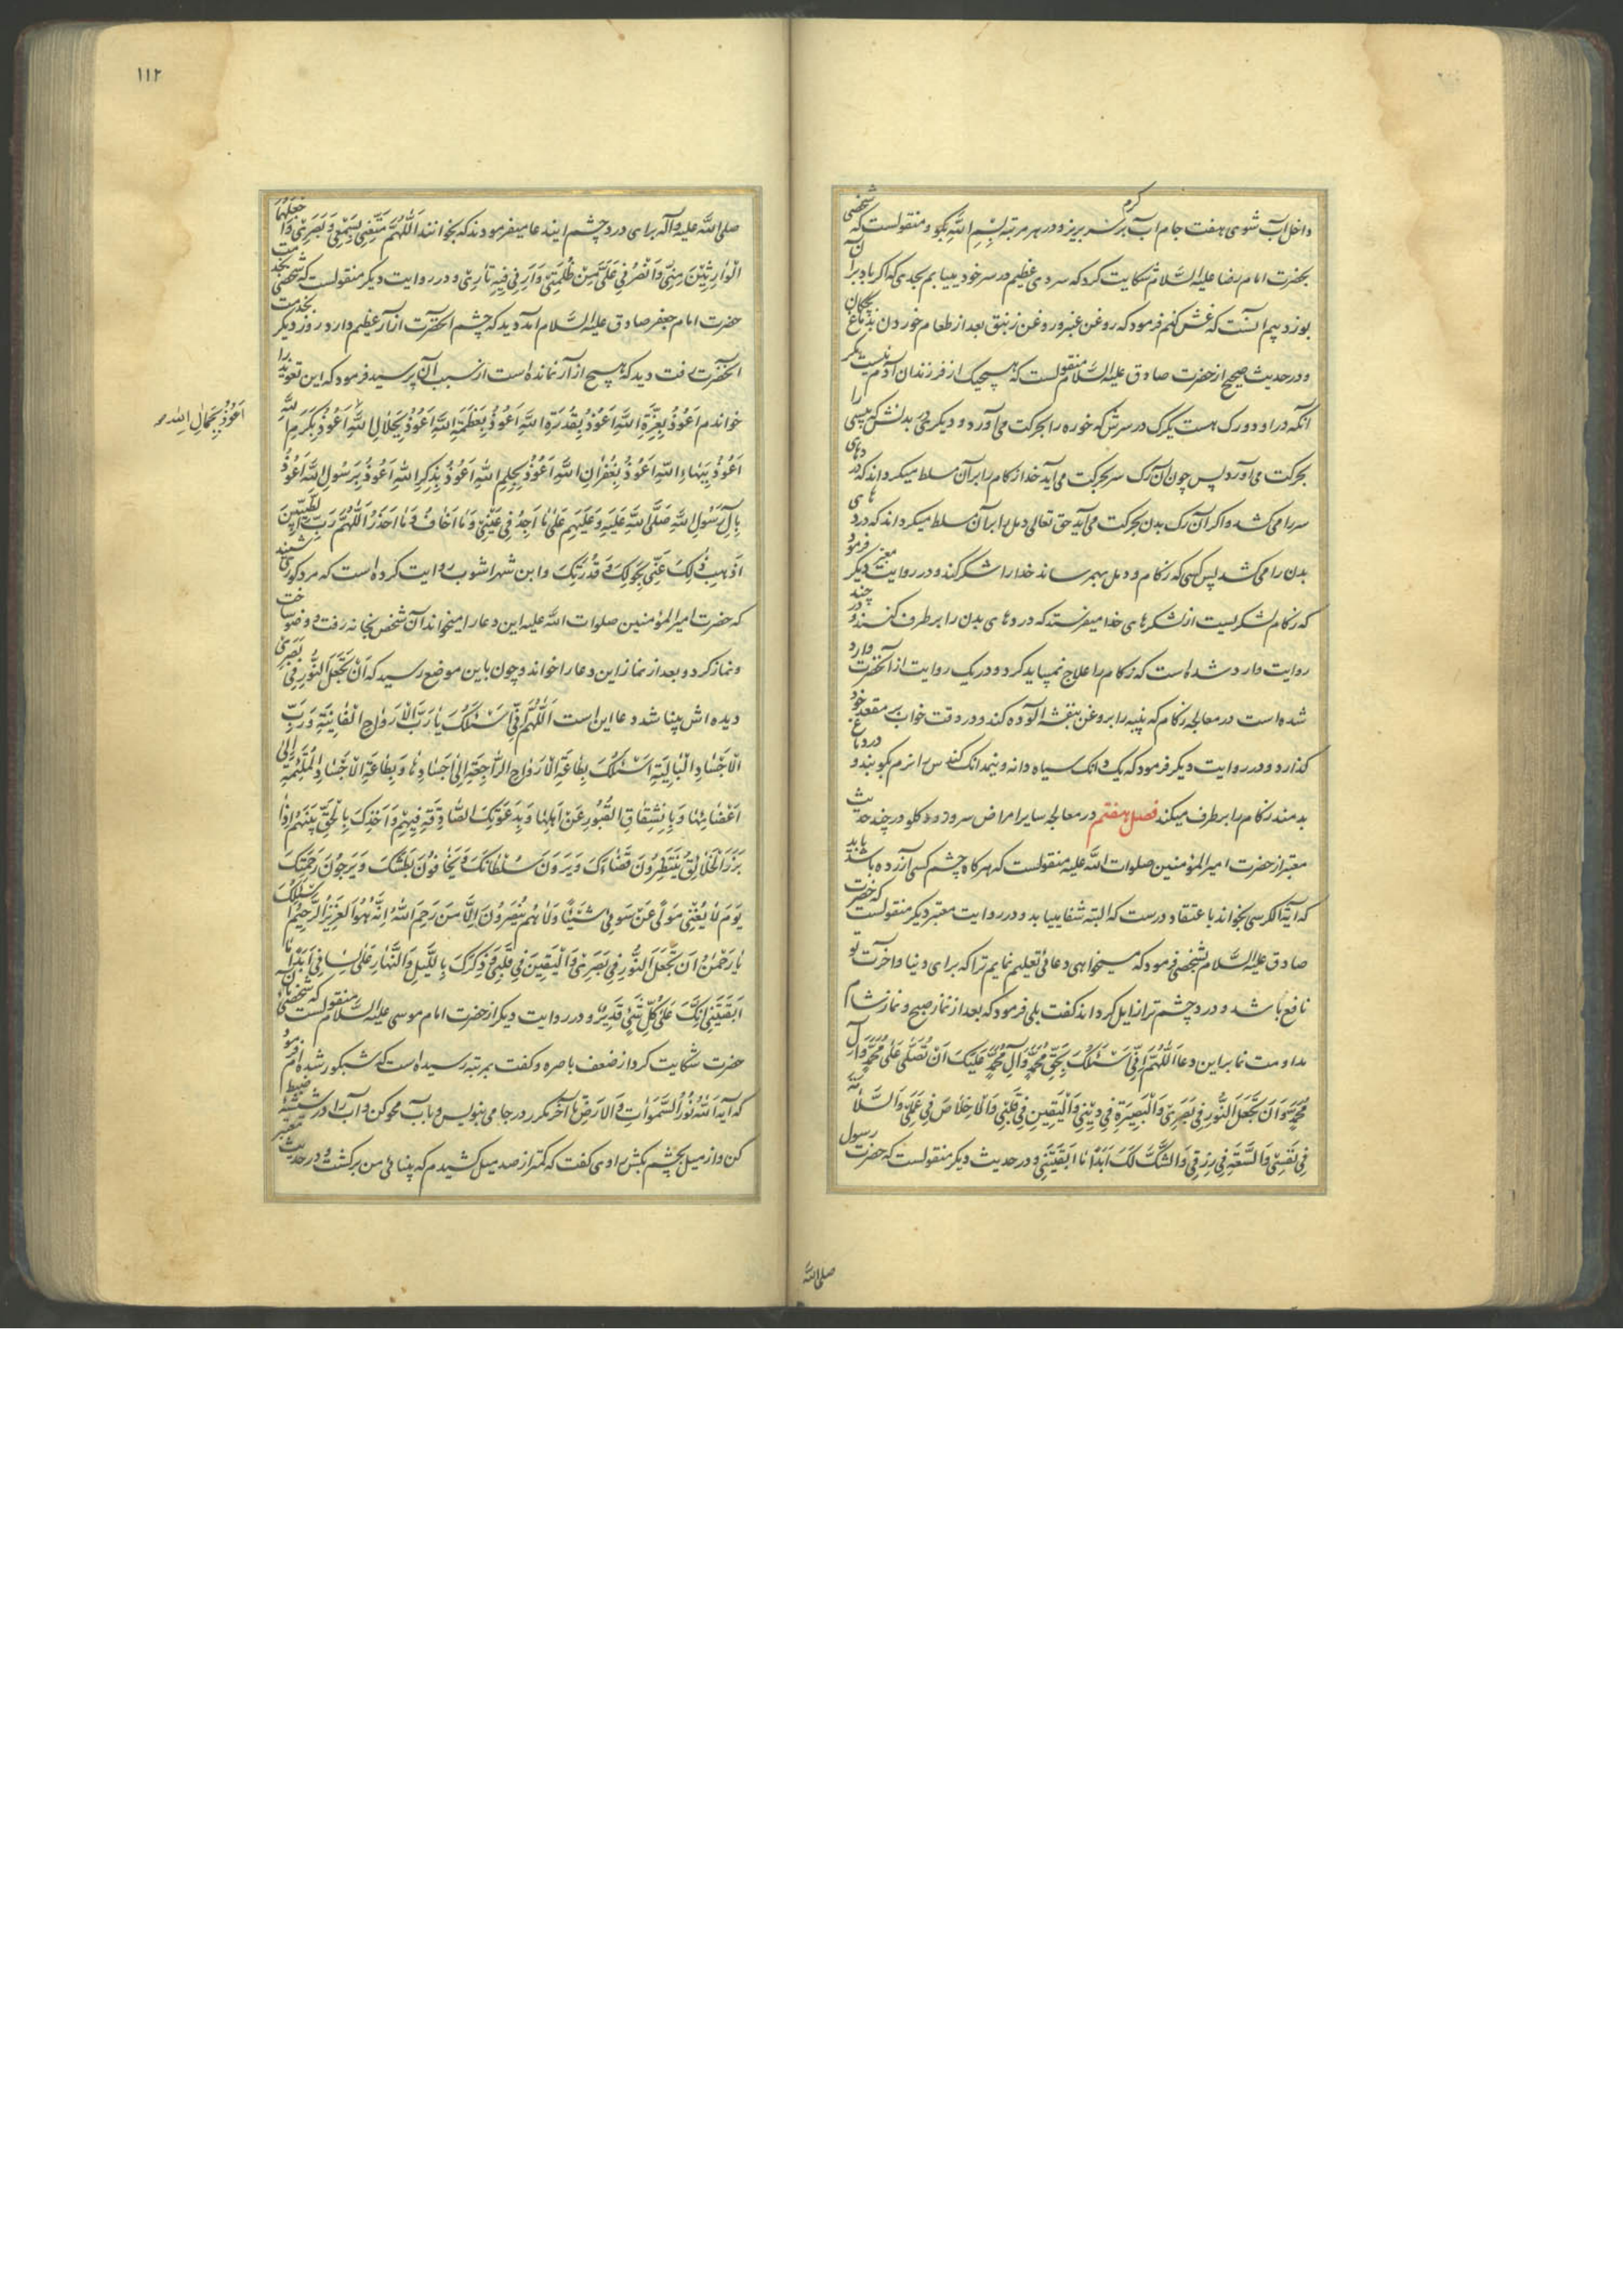 داخل آب شوی هفت جام آب کرم بر سر بریز و در هر مرتبه بِسْمِ اللّٰهِ بکو و منقولست که شخصی
بحضرت امام رضا علیه السّلام شکایت کرد که سردی عظیم در سر خود مییابم بحدی که اکر باد بر آن
بوزد بیم آنست که غش کنم فرمود که روغن عنبر و روغن زنبق بعد از طعام خوردن بدماغ بچکان
و در حدیث صحیح از حضرت صادق علیه السّلام منقولست که هیچیک از فرزندان آدم نیست مکر
آنکه در او دو رک هست یکرک در سرش که خوره را بحرکت می‌آورد و دیکری در بدنش که پیسی را
بحرکت می‌آورد پس چون آن رک سر بحرکت می‌آید خدا زکام را بر آن مسلط میکرداند که دردهای
سر را می‌کشد و اکر آن رک بدن بحرکت می‌آید حق تعالی دمل را بر آن مسلط میکرداند که دردهای
بدن را می‌کشد پس کسی که زکام و دمل بهم رساند خدا را شکر کند و در روایت معتبر دیکر فرمود
که زکام لشکریست از لشکرهای خدا میفرستد که دردهای بدن را برطرف کند و در چند
روایت وارد شده است که زکام را علاج نمیباید کرد و در یک روایت از آنحضرت وارد
شده است در معالجه زکام که پنبه را بروغن بنفشه آلوده کند و در وقت خواب بر مقعد خود
کذارد و در روایت دیکر فرمود که یک دانک سیاه دانه و نیمدانک کندس را نرم بکوبند و در دماغ
بدمند زکام را برطرف میکند فصل هفتم در معالجه سایر امراض سر و رو و کلو در چند حدیث
معتبر از حضرت امیر المؤمنین صلوات اللّٰه علیه منقولست که هر کاه چشم کسی آزرده باشد باید
که آیة الکرسی بخواند با عتقاد درست که البته شفا مییابد و در روایت معتبر دیکر منقولست که حضرت
صادق علیه السّلام بشخصی فرمود که میخواهی دعائی تعلیم نمایم ترا که برای دنیا و آخرت تو
نافع باشد و درد چشم ترا زایل کرداند کفت بلی فرمود که بعد از نماز صبح و نماز شام
مداومت نما بر این دعا اَللّٰهُمَّ اِنّی اَسْئَلُکَ بِحَقِّ مُحَمَّدٍ وَآلِ مُحَمَّدٍ عَلَیْکَ اَنْ تُصَلِّیَ عَلٰی مُحَمَّدٍ وَآلِ
مُحَمَّدٍ وَ اَنْ تَجْعَلَ النُّورَ فِی بَصَرِی وَالْبَصِیرَةَ فِی دِینِی وَالْیَقِینَ فِی قَلْبِی وَالْاِخْلاصَ فِی عَمَلِی وَالسَّلامَةَ
فِی نَفْسِی وَالسَّعَةَ فِی رِزْقِی وَالشُّکْرَ لَکَ اَبَدًا مٰا اَبْقَیْتَنِی و در حدیث دیکر منقولست که حضرت رسول
صلی اللّٰه
١١٢
صلی اللّٰه علیه وآله برای درد چشم این دعا میفرمودند که بخوانند اَللّٰهُمَّ مَتِّعْنِی بِسَمْعِی وَ بَصَرِی وَاجْعَلْهُمَا
الْوٰارِثَیْنِ مِنِّی وَانْصُرْنِی عَلٰی مَنْ ظَلَمَنِی وَاَرِنِی فِیهِ ثٰارِی و در روایت دیکر منقولست که شخصی بخدمت
حضرت امام جعفر صادق علیه السّلام آمد و دید که چشم آنحضرت آزار عظیم دارد روز دیکر بخدمت
آنحضرت رفت دید که هیچ از آزار نمانده است از سبب آن پرسید فرمود که این تعویذ را
خواندم اَعُوذُ بِعِزَّةِ اللّٰهِ اَعُوذُ بِقُدْرَةِ اللّٰهِ اَعُوذُ بِعَظَمَةِ اللّٰهِ اَعُوذُ بِجَلالِ اللّٰهِ اَعُوذُ بِکَرَمِ اللّٰهِ
اَعُوذُ بِجَمٰالِ اللّٰهِ
اَعُوذُ بِبَهٰاءِ اللّٰهِ اَعُوذُ بِغُفْرٰانِ اللّٰهِ اَعُوذُ بِحِلْمِ اللّٰهِ اَعُوذُ بِذِکْرِ اللّٰهِ اَعُوذُ بِرَسُولِ اللّٰهِ اَعُوذُ
بِآلِ رَسُولِ اللّٰهِ صَلَّی اللّٰهُ عَلَیْهِ وَعَلَیْهِمْ عَلٰی مٰا اَجِدُ فِی عَیْنِی وَمٰا اَخٰافُ وَمٰا اَحْذَرُ اَللّٰهُمَّ رَبَّ الطَّیِّبِینَ
اَذْهِبْ ذٰلِکَ عَنِّی بِحَوْلِکَ وَ قُدْرَتِکَ و ابن شهراشوب روایت کرده است که مرد کوری شنید
که حضرت امیر المؤمنین صلوات اللّٰه علیه این دعا را میخواند آن شخص بخانه رفت و وضو ساخت
و نماز کرد و بعد از نماز این دعا را خواند و چون باین موضع رسید که اَنْ تَجْعَلَ النُّورَ فِی بَصَرِی
دیده‌اش بینا شد و دعا این است اَللّٰهُمَّ اِنّی اَسْئَلُکَ یٰا رَبَّ الْاَرْوٰاحِ الْفٰانِیَةِ وَ رَبَّ
الْاَجْسٰادِ الْبٰالِیَةِ اَسْئَلُکَ بِطٰاعَةِ الْاَرْوٰاحِ الرّٰاجِعَةِ اِلٰی اَجْسٰادِهٰا وَ بِطٰاعَةِ الْاَجْسٰادِ الْمُلْتَئِمَةِ اِلٰی
اَعْضٰائِهٰا وَ بِانْشِقٰاقِ الْقُبُورِ عَنْ اَهْلِهٰا وَ بِدَعْوَتِکَ الصّٰادِقَةِ فِیهِمْ وَ اَخْذِکَ بِالْحَقِّ بَیْنَهُمْ اِذٰا
بَرَزَ الْخَلٰائِقُ یَنْتَظِرُونَ قَضٰاءَکَ وَ یَرَوْنَ سُلْطٰانَکَ وَ یَخٰافُونَ بَطْشَکَ وَ یَرْجُونَ رَحْمَتَکَ
یَوْمَ لٰا یُغْنِی مَوْلًی عَنْ مَوْلًی شَیْئًا وَلٰا هُمْ یُنْصَرُونَ اِلّٰا مَنْ رَحِمَ اللّٰهُ اِنَّهُ هُوَ الْعَزِیزُ الرَّحِیمُ اَسْئَلُکَ
یٰا رَحْمٰنُ اَنْ تَجْعَلَ النُّورَ فِی بَصَرِی وَالْیَقِینَ فِی قَلْبِی وَ ذِکْرَکَ بِاللَّیْلِ وَالنَّهٰارِ عَلٰی لِسٰانِی اَبَدًا مٰا
اَبْقَیْتَنِی اِنَّکَ عَلٰی کُلِّ شَیْءٍ قَدِیرٌ و در روایت دیکر از حضرت امام موسی علیه السّلام منقولست که شخصی بآن
حضرت شکایت کرد از ضعف باصره و کفت بمرتبه رسیده است که شبکور شده‌ام فرمود
که آیه اَللّٰهُ نُورُ السَّمٰوٰاتِ وَالْاَرْضِ تا آخر مکرر در جامی بنویس و بآب محو کن و آب را در شیشه ضبط
کن و از میل بچشم بکش راوی کفت که کمتر از صد میل کشیدم که بینائی من برکشت و در حدیث معتبر